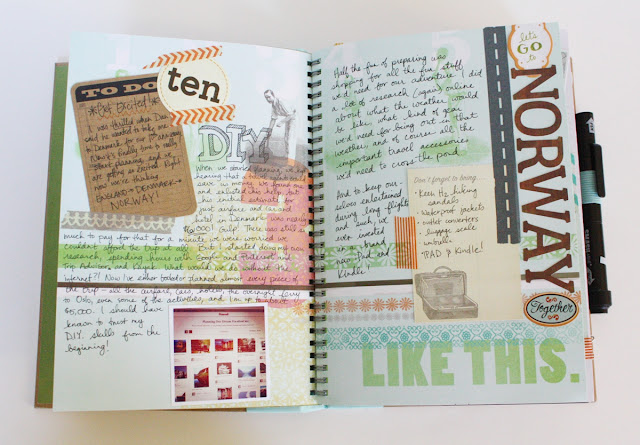 TO DO
*Get Excited
I was thrilled when Dan
said he wanted to take me
to Denmark for our 10th anniversary.
Now it's finally time to really
start planning, and I
am getting so excited! Right
now we're thinking
ENGLAND → DENMARK →
NORWAY!
ten
DIY
When we started
hearing that
save us money
this help, but
his estimate
just airfare and
hotel in Denmark was nearly
$6,000! Gulp. There was still so
much to pay for that for a minute we were worried we
couldn't afford the trip
research, spending hours with Google and Pinterest and
Trip Advisor and
Internet?! Now I've either booked or planned almost every piece of
the trip - all the airfare, cars, hotels, the overnight ferry
to Oslo, even some of the activities, and I'm up to about
$5,000. I should have
known to trust my
DIY skills from the
beginning!
Half the fun of preparing was
shopping for all the fun stuff
we'd need for our adventure. I did
a lot of research (again) online
about what the weather would
be like, what kind of gear
we'd need for being out in that
weather and of course all the
important travel accessories
we'd need to cross the pond.
And to keep our
selves entertained
during long flights
and such, we
even invested
in a brand
new iPad and
Kindle!
Don't forget to bring...
Keen hiking
sandals
• Waterproof jackets
• outlet converters
• luggage scale
• umbrella
*IPAD & Kindle!
let's
GO
to
NORWAY
Together
LIKE THIS.